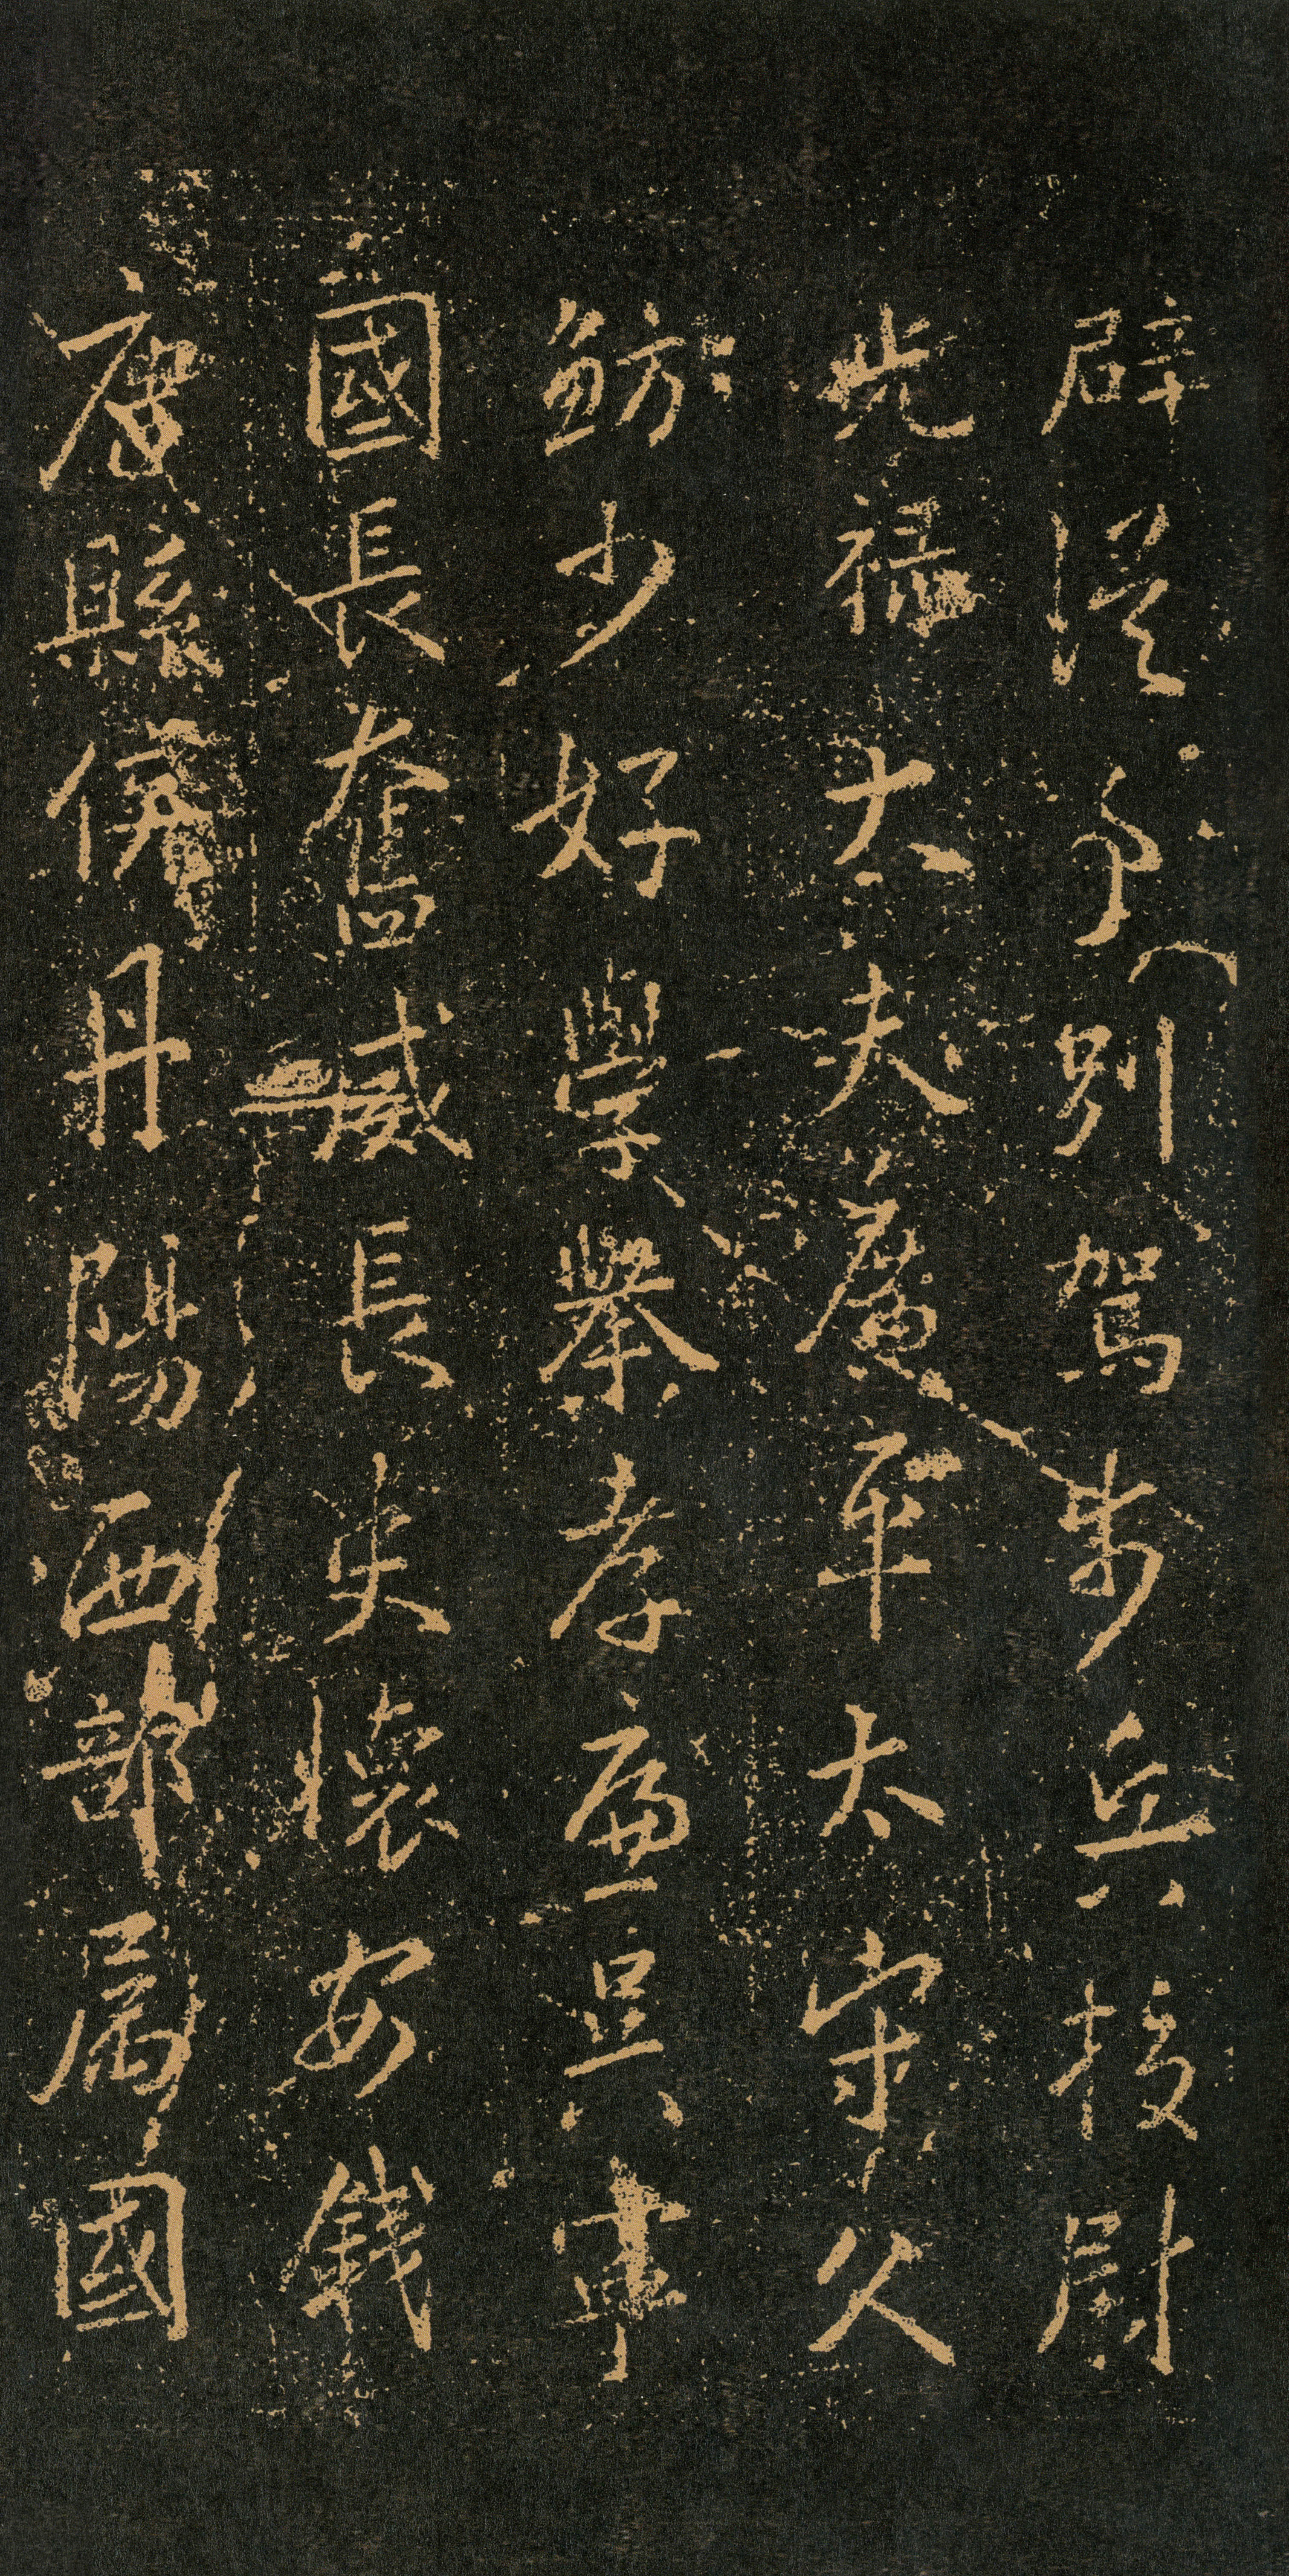 辟從事別駕步兵校尉
光祿大夫廣平太守父
魴少好學舉孝廉吳寧
國長奮威長史懷安錢
唐縣侯丹陽西部屬國